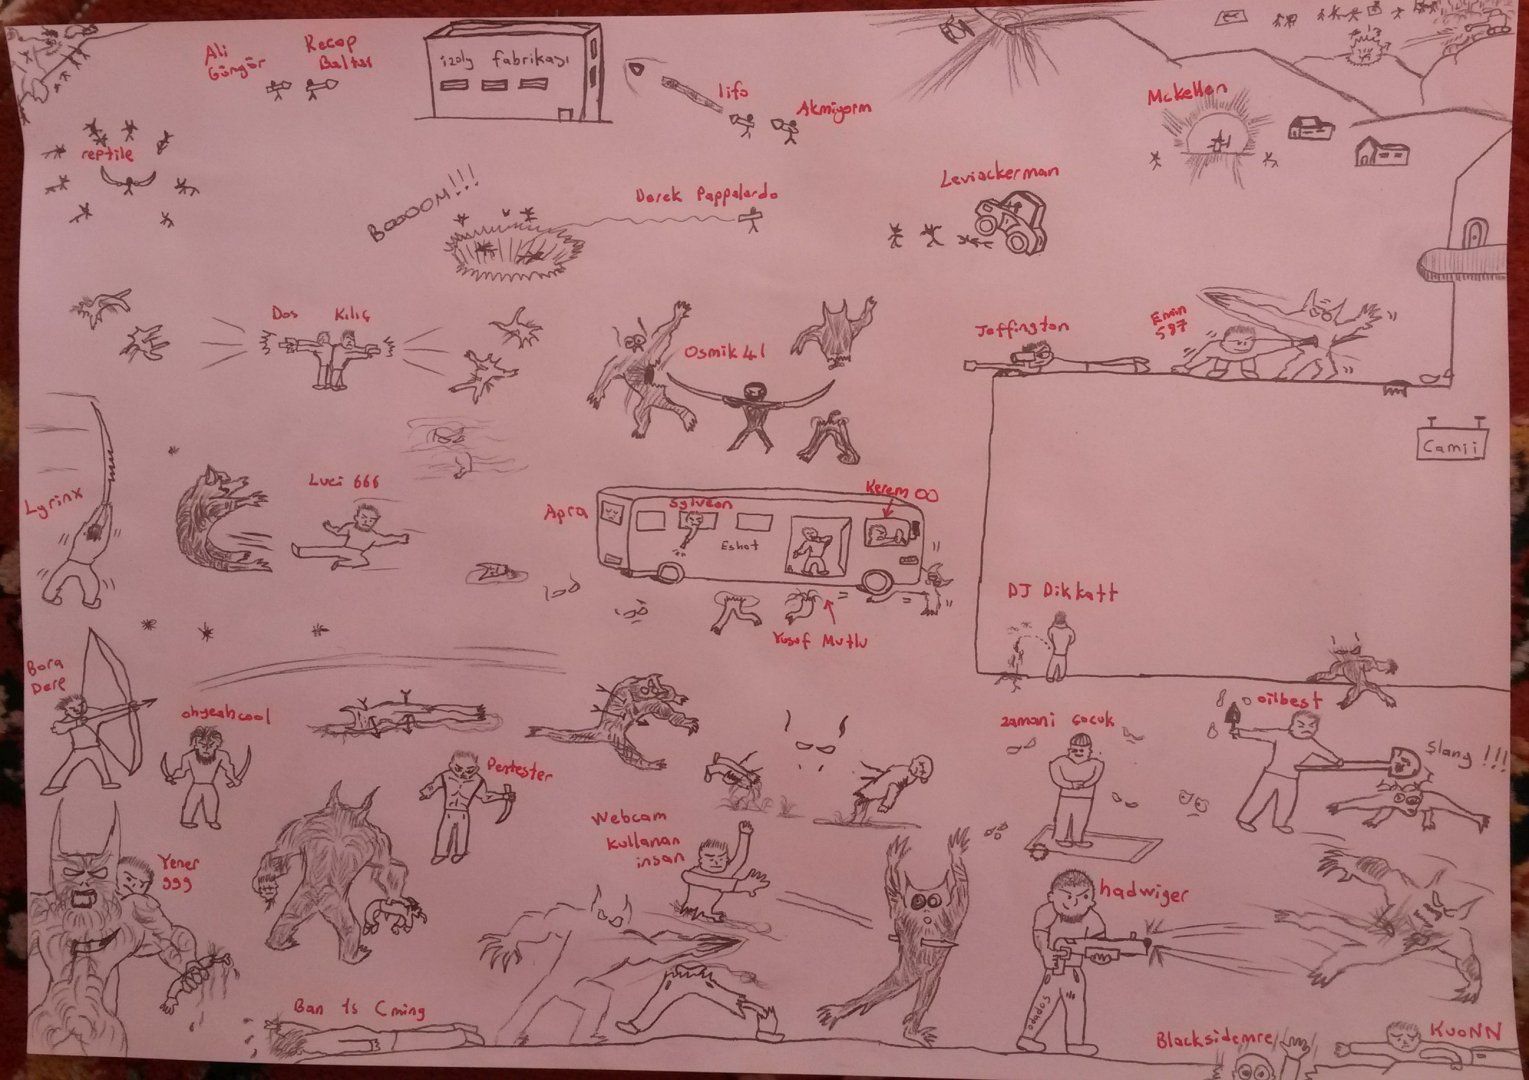 Ali
Güngör
Recep
Baltaş
izoly fabrikası
lifo
Akmiyorm
McKellen
reptile
BOOOOM!!!
Derek Pappalardo
Leviackerman
Dos Kılıç
Osmik41
Joffington
Emin
587
Camii
Lyrinx
Luci 666
Apra
Sylveon
Kerem OO
Eshot
Yusuf Mutlu
DJ Dikkatt
Bora
Dere
ohyeahcool
Pentester
zamani çocuk
oilbest
Slang !!!
Webcam
kullanan
insan
Yener
999
hadwiger
Ban 1s Cming
odabaş
Blacksidemre
KuoNN